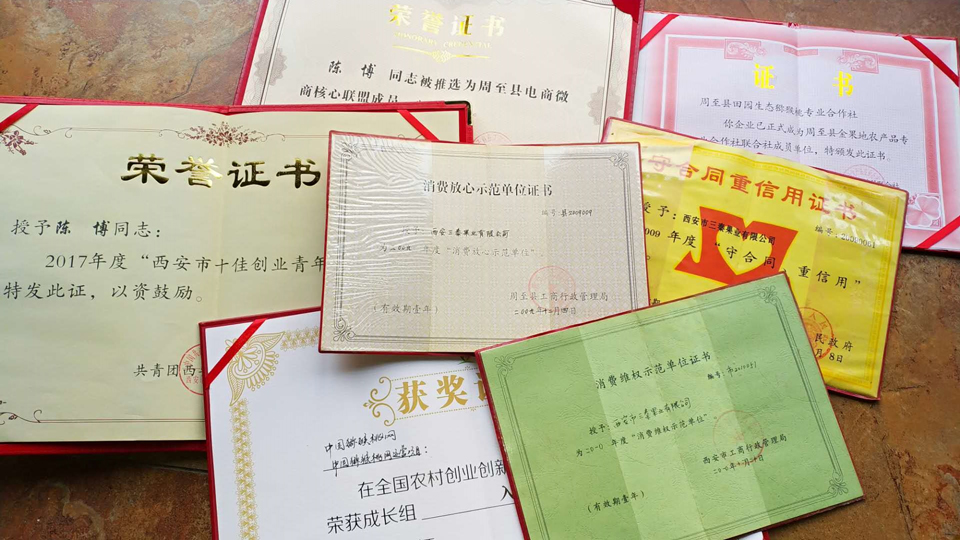 荣誉证书
陈 博 同志被推选为周至县电商微
商核心联盟成员
证 书
周至县田园生态猕猴桃专业合作社
你企业已正式成为周至县金果地农产品专
业合作社联合社成员单位，特颁发此证书。
荣誉证书
授予陈 博同志：
2017年度“西安市十佳创业青年
特发此证，以资鼓励。
共青团西
消费放心示范单位证书
编号:县2009009
授予:西安三秦果业有限公司
为二00九年度“消费放心示范单位”。
周至县工商行政管理局
(有效期壹年)
二00九年十二月四日
守合同重信用证书
授予:西安市三秦果业有限公司
编号:
2009 年度“守合同 重信用”
民政府
月 8 日
获奖证
中国猕猴桃网
在全国农村创业创新
荣获成长组
入
消费维权示范单位证书
编号:市2010051
授予:西安市三秦果业有限公司
为二0一0年度“消费维权示范单位”。
西安市工商行政管理局
(有效期壹年)